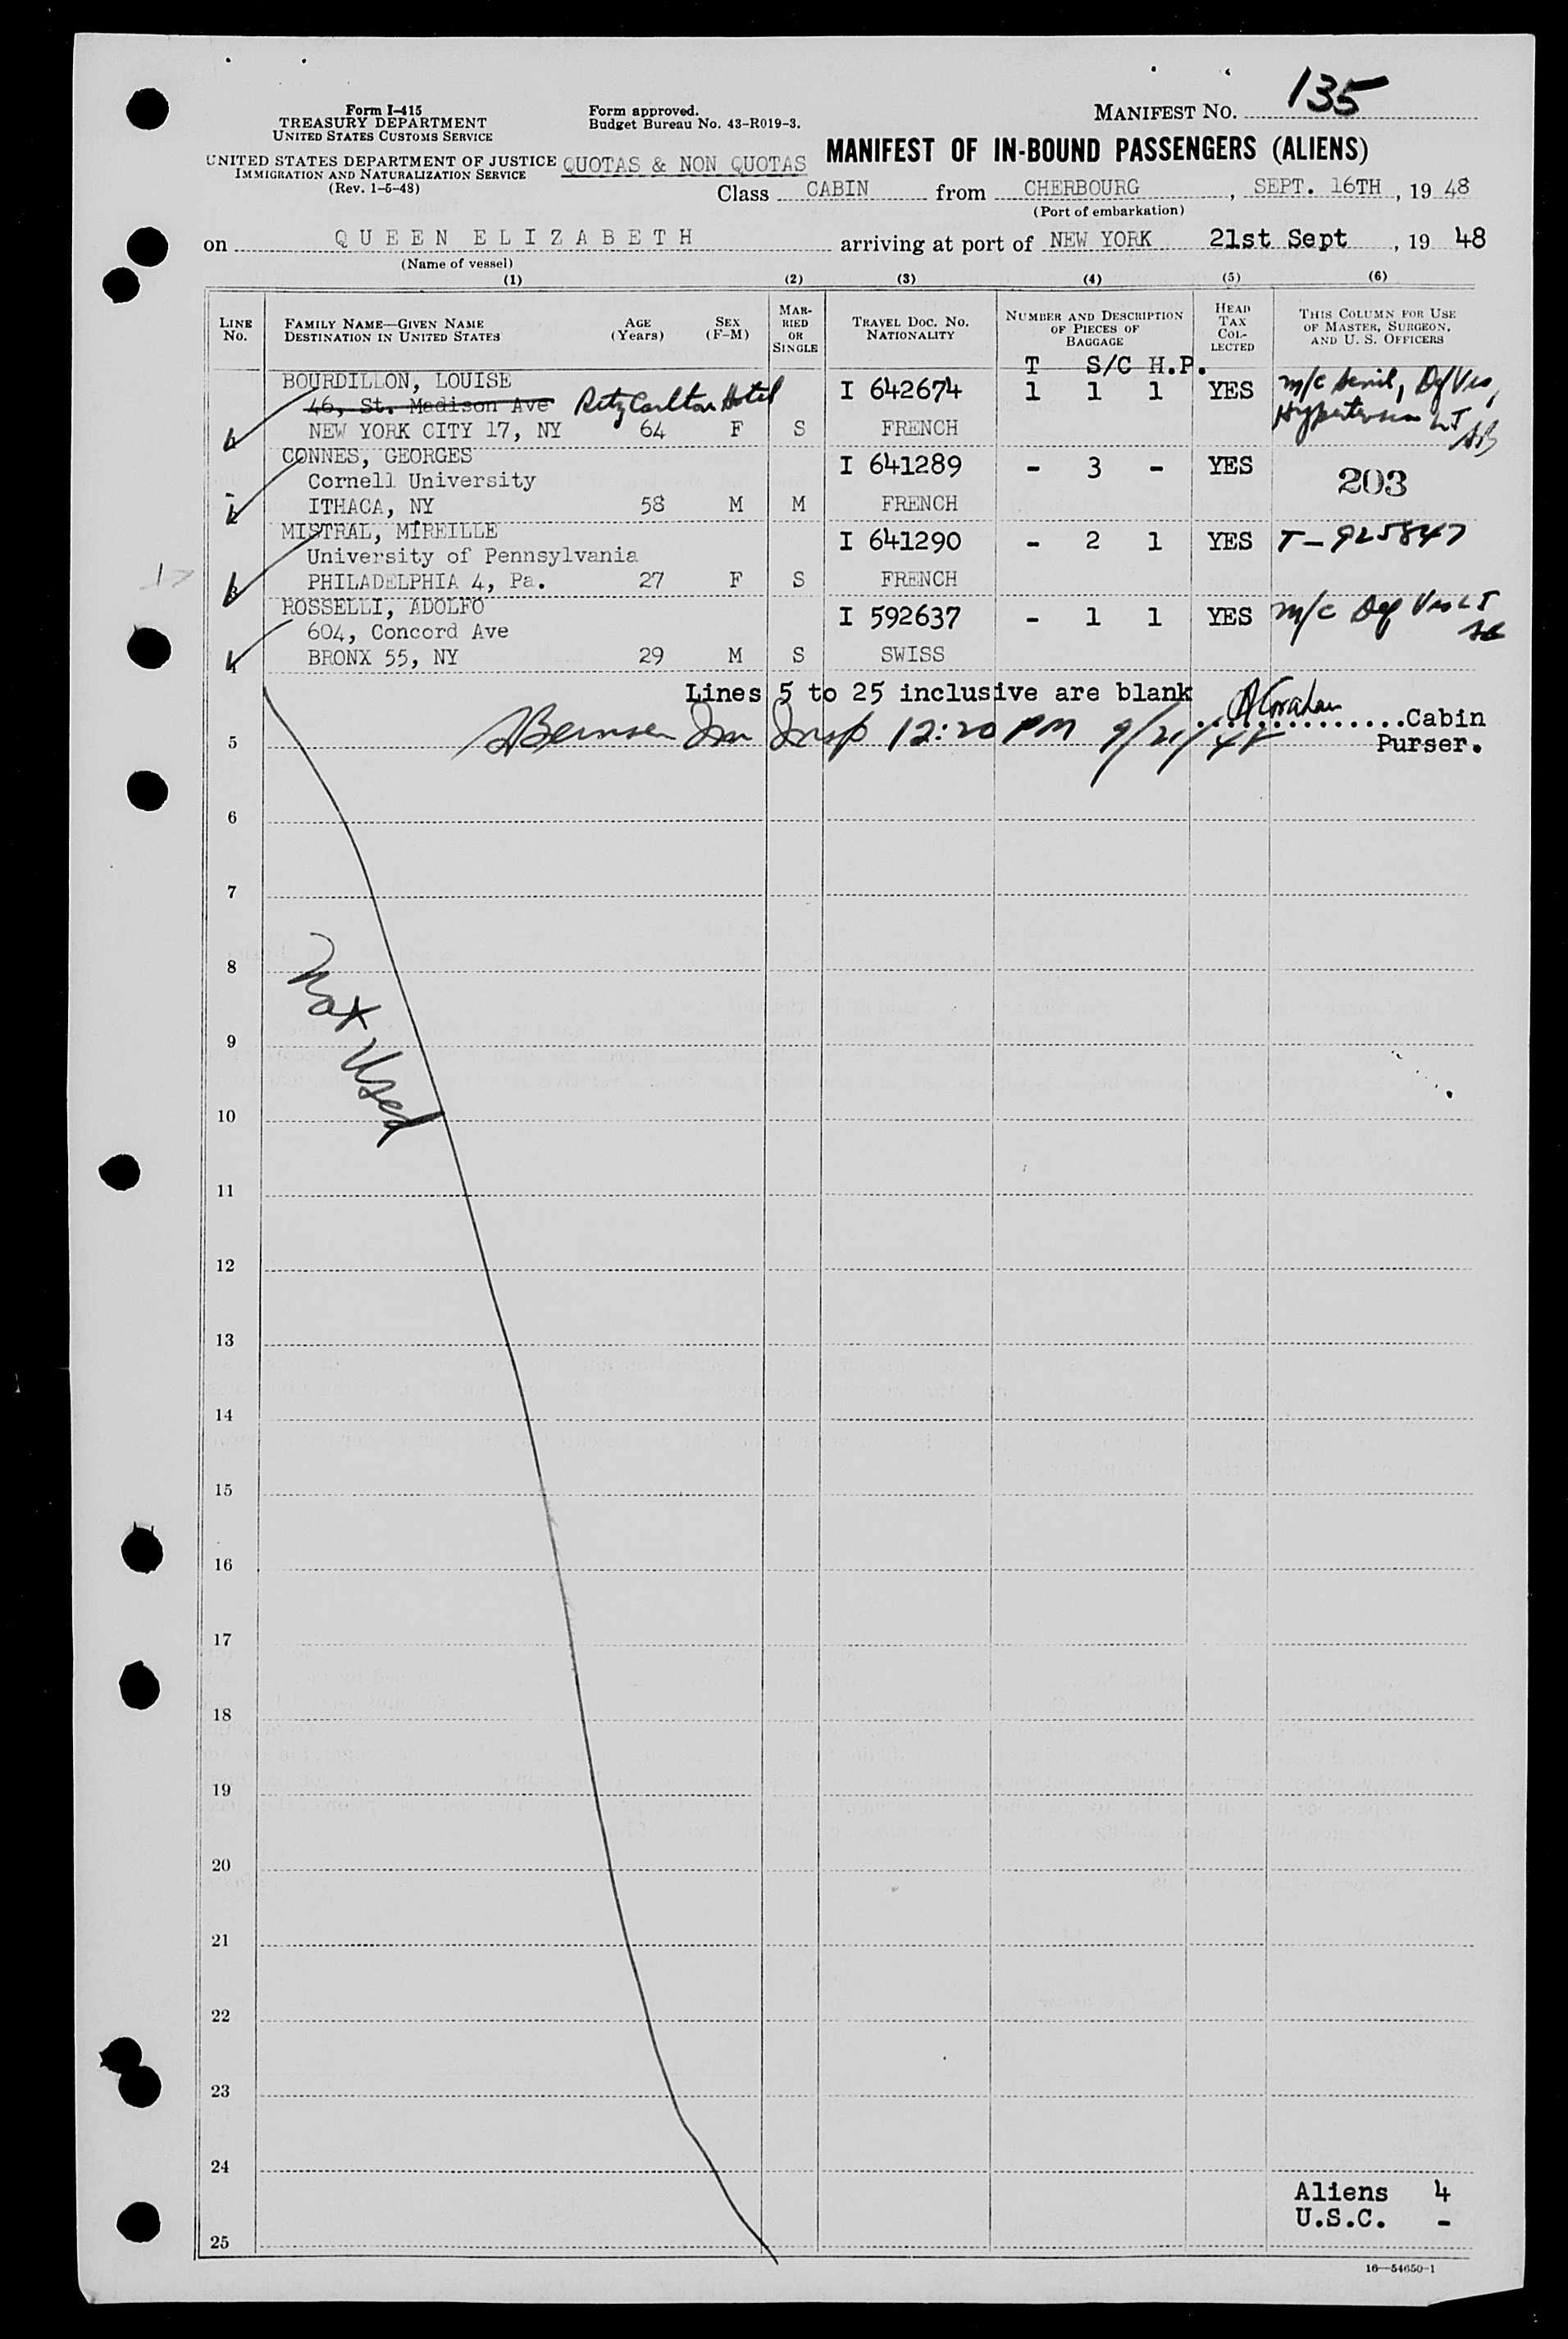 Form I-415
TREASURY DEPARTMENT
UNITED STATES CUSTOMS SERVICE
Form approved.
Budget Bureau No. 43-R019-3.
MANIFEST NO. 135
UNITED STATES DEPARTMENT OF JUSTICE
IMMIGRATION AND NATURALIZATION SERVICE
(Rev. 1-5-48)
QUOTAS & NON QUOTAS
MANIFEST OF IN-BOUND PASSENGERS (ALIENS)
Class CABIN from CHERBOURG, SEPT. 16TH, 19 48
(Port of embarkation)
on QUEEN ELIZABETH arriving at port of NEW YORK 21st Sept, 19 48
(Name of vessel)
(1) (2) (3) (4) (5) (6)
LINE NO.
FAMILY NAME—GIVEN NAME
DESTINATION IN UNITED STATES
AGE (Years)
SEX (F-M)
MARRIED OR SINGLE
TRAVEL DOC. NO.
NATIONALITY
NUMBER AND DESCRIPTION OF PIECES OF BAGGAGE
HEAD TAX COLLECTED
THIS COLUMN FOR USE OF MASTER, SURGEON, AND U. S. OFFICERS
T S/C H.P.
BOURDILLON, LOUISE I 642674 1 1 1 YES m/c Senil, Def Vis,
46, St. Madison Ave Ritz Carlton Hotel Hypertension LT
NEW YORK CITY 17, NY 64 F S FRENCH
CONNES, GEORGES I 641289 - 3 - YES
Cornell University 203
ITHACA, NY 58 M M FRENCH
MISTRAL, MIREILLE I 641290 - 2 1 YES T-925847
University of Pennsylvania
PHILADELPHIA 4, Pa. 27 F S FRENCH
ROSSELLI, ADOLFO I 592637 - 1 1 YES m/c Def Vis LT
604, Concord Ave
BRONX 55, NY 29 M S SWISS
4
Lines 5 to 25 inclusive are blank
..............Cabin
Purser.
5 Imm Insp 12:20 PM 9/21/48
6
7
8
Not Used
9
10
11
12
13
14
15
16
17
18
19
20
21
22
23
24
Aliens 4
U.S.C. -
25
16—54650-1